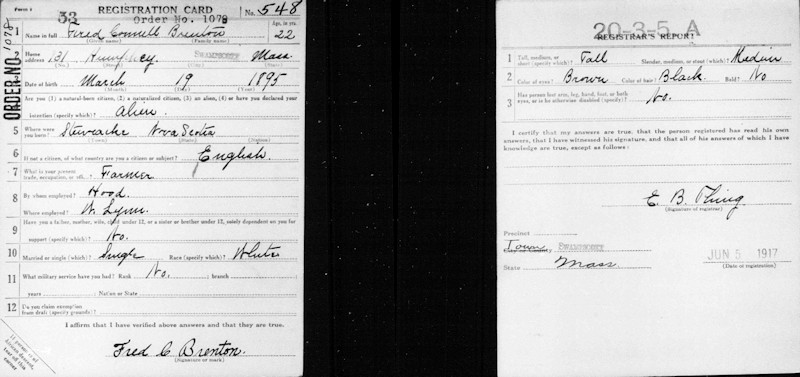 Form 1
33
REGISTRATION CARD
No. 548
Order No. 1078
ORDER NO. 1078
1 Name in full Fred Connell Brenton 22
(Given name) (Family name) Age, in yrs.
2 Home address 131 Humphrey SWAMPSCOTT Mass.
(No.) (Street) (City) (State)
3 Date of birth March 19 1895
(Month) (Day) (Year)
4 Are you (1) a natural-born citizen, (2) a naturalized citizen, (3) an alien, (4) or have you declared your
intention (specify which)? Alien.
5 Where were you born? Nova Scotia
(Town) (State) (Nation)
6 If not a citizen, of what country are you a citizen or subject? English.
7 What is your present trade, occupation, or office? Farmer
8 By whom employed? Hood.
Where employed? W. Lynn.
9 Have you a father, mother, wife, child under 12, or a sister or brother under 12, solely dependent on you for
support (specify which)? No.
10 Married or single (which)? Single Race (specify which)? White
11 What military service have you had? Rank No. ; branch
years ; Nation or State
12 Do you claim exemption from draft (specify grounds)?
I affirm that I have verified above answers and that they are true.
Fred C Brenton.
(Signature or mark)
20-3-5 A
REGISTRAR'S REPORT
1 Tall, medium, or short (specify which)? Tall Slender, medium, or stout (which)? Medium
2 Color of eyes? Brown Color of hair? Black. Bald? No
3 Has person lost arm, leg, hand, foot, or both eyes, or is he otherwise disabled (specify)? No.
I certify that my answers are true, that the person registered has read his own
answers, that I have witnessed his signature, and that all of his answers of which I have
knowledge are true, except as follows:
E. B. Thing.
(Signature of registrar)
Precinct
Town SWAMPSCOTT
City or County
State Mass.
JUN 5 1917
(Date of registration)